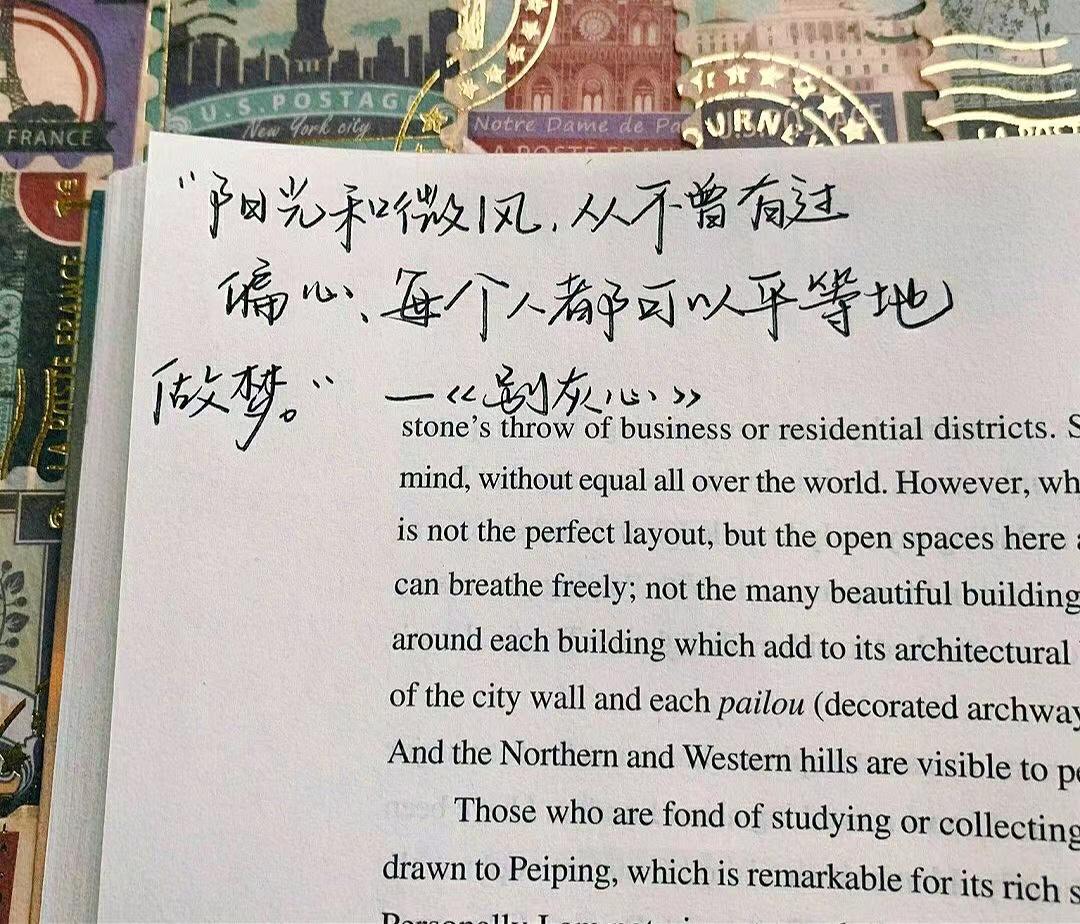 FRANCE
U.S.POSTAG
New York city
Notre Dame de Pa
URN
LA POSTE FRANCE
“阳光和微风,从不曾有过
偏心、每个人都可以平等地
做梦。”
—《别灰心》
stone's throw of business or residential districts. S
mind, without equal all over the world. However, wh
is not the perfect layout, but the open spaces here a
can breathe freely; not the many beautiful building
around each building which add to its architectural
of the city wall and each pailou (decorated archway
And the Northern and Western hills are visible to pe
Those who are fond of studying or collecting
drawn to Peiping, which is remarkable for its rich s